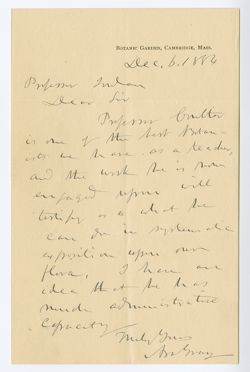 BOTANIC GARDEN, CAMBRIDGE, MASS.
Dec. 6. 1886
Professor Jordan
Dear Sir
Professor Coulter
is one of the best Botan-
ists we have. as a teacher,
and the work he is now
engaged upon will
testify as to what he
can do in systematic
exposition upon our
flora. I have an
idea that he has
much administrative
capacity.
Truly Yours
Asa Gray